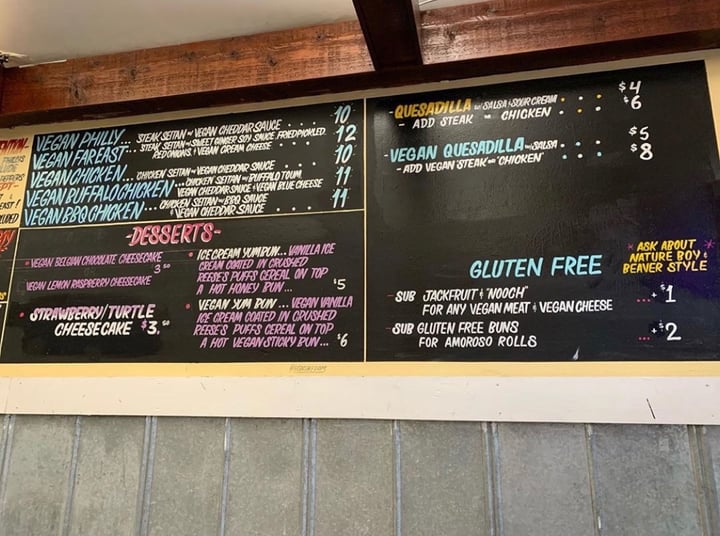 VEGAN PHILLY... STEAK SEITAN W/ VEGAN CHEDDAR SAUCE . . . . 10
VEGAN FAR EAST... STEAK SEITAN W/ SWEET GINGER SOY SAUCE, FRIED PICKLED
RED ONIONS, & VEGAN CREAM CHEESE . . . 12
VEGAN CHICKEN... CHICKEN SEITAN W/ VEGAN CHEDDAR SAUCE . . . 10
VEGAN BUFFALO CHICKEN... CHICKEN SEITAN W/ BUFFALO TOUM
VEGAN CHEDDAR SAUCE & VEGAN BLUE CHEESE 11
VEGAN BBQ CHICKEN... CHICKEN SEITAN W/ BBQ SAUCE
& VEGAN CHEDDAR SAUCE . . . . 11
-DESSERTS-
• VEGAN BELGIAN CHOCOLATE CHEESECAKE
3.50
• VEGAN LEMON RASPBERRY CHEESECAKE
• STRAWBERRY/TURTLE
CHEESECAKE $3.50
• ICE CREAM YUM BUN... VANILLA ICE
CREAM COATED IN CRUSHED
REESE'S PUFFS CEREAL ON TOP
A HOT HONEY BUN... $5
• VEGAN YUM BUN... VEGAN VANILLA
ICE CREAM COATED IN CRUSHED
REESE'S PUFFS CEREAL ON TOP
A HOT VEGAN STICKY BUN... $6
-QUESADILLA W/ SALSA & SOUR CREAM . . . $4
- ADD STEAK OR CHICKEN . . . $6
-VEGAN QUESADILLA W/ SALSA . . . $5
- ADD VEGAN "STEAK" OR "CHICKEN" . . . $8
GLUTEN FREE
* ASK ABOUT *
NATURE BOY &
BEAVER STYLE
-SUB JACKFRUIT & "NOOCH"
FOR ANY VEGAN MEAT & VEGAN CHEESE ...+$1
-SUB GLUTEN FREE BUNS
FOR AMOROSO ROLLS ...+$2